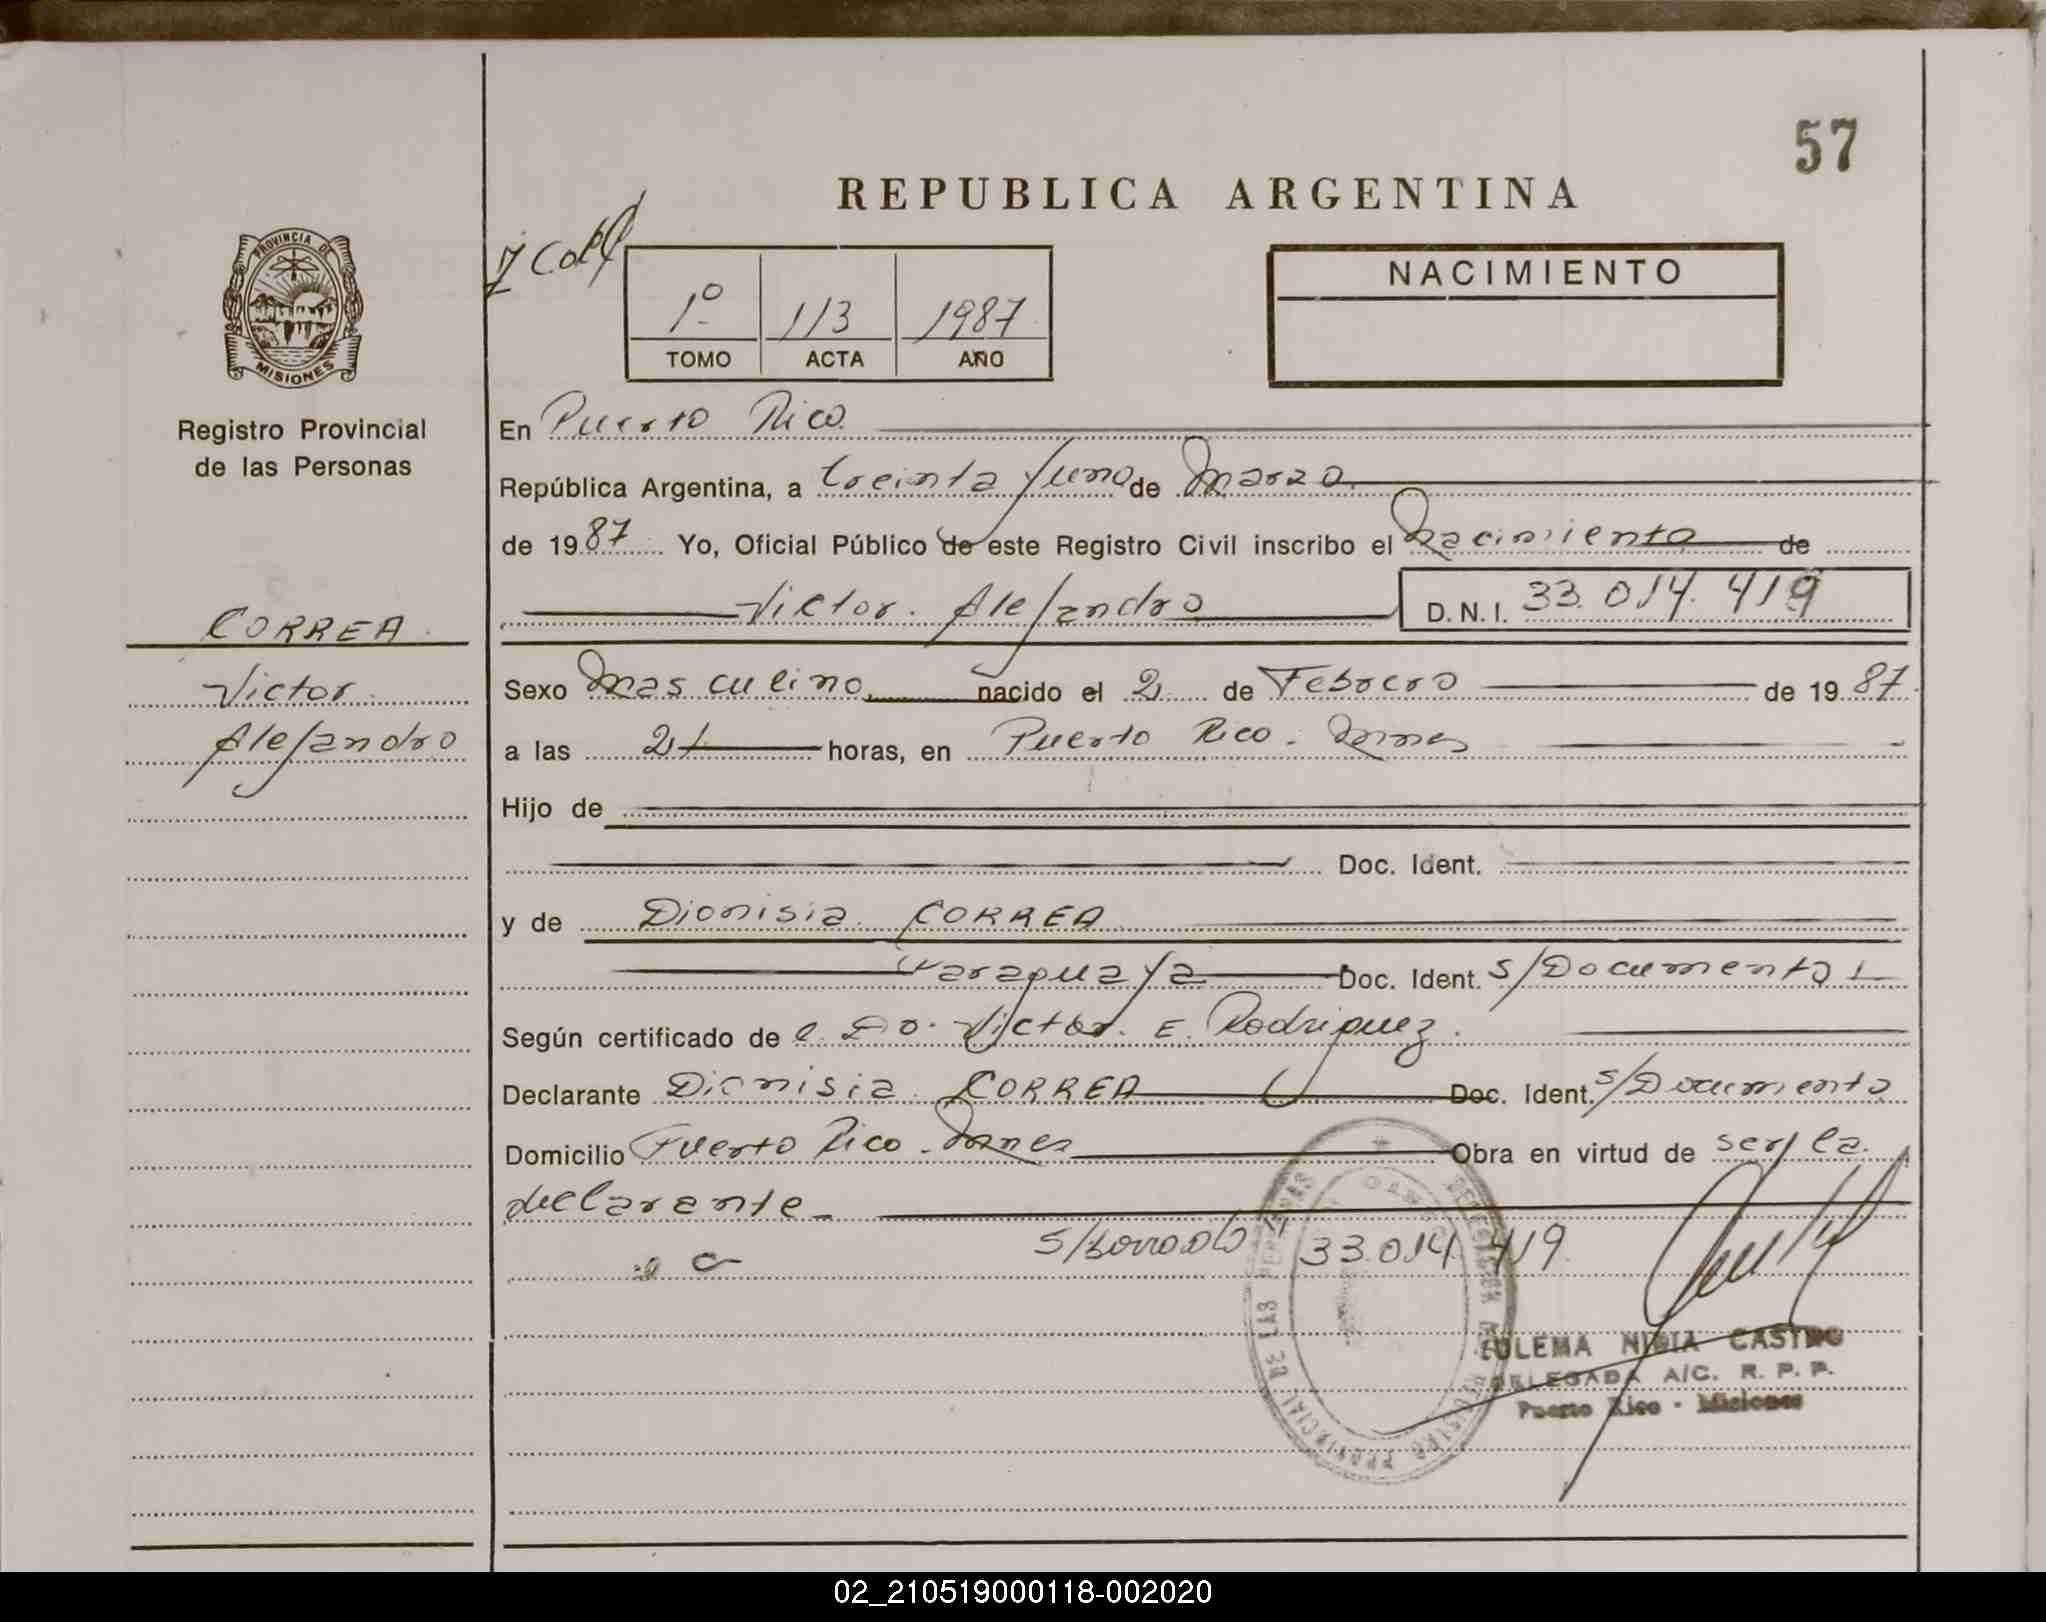 57
REPUBLICA ARGENTINA
PROVINCIA DE
MISIONES
Registro Provincial
de las Personas
1º 113 1987
TOMO ACTA AÑO
NACIMIENTO
En Puerto Rico.
República Argentina, a treinta y uno de Marzo
de 1987 Yo, Oficial Público de este Registro Civil inscribo el Nacimiento de
Victor Alejandro D.N.I. 33.014.419
CORREA
Victor
Alejandro
Sexo Masculino nacido el 2 de Febrero de 1987
a las 21 horas, en Puerto Rico - Mnes
Hijo de
Doc. Ident.
y de Dionisia CORREA
Paraguaya Doc. Ident. S/Documento
Según certificado de el Dr. Victor E. Rodriguez.
Declarante Dionisia CORREA Doc. Ident. S/Documento
Domicilio Puerto Rico - Mnes Obra en virtud de ser la
declarante
S/borrado " 33.014.419
DELEGACION DEL REGISTRO PROVINCIAL DE LAS PERSONAS
ZULEMA NIDIA CASTRO
DELEGADA A/C. R. P. P.
Puerto Rico - Misiones
02_210519000118-002020